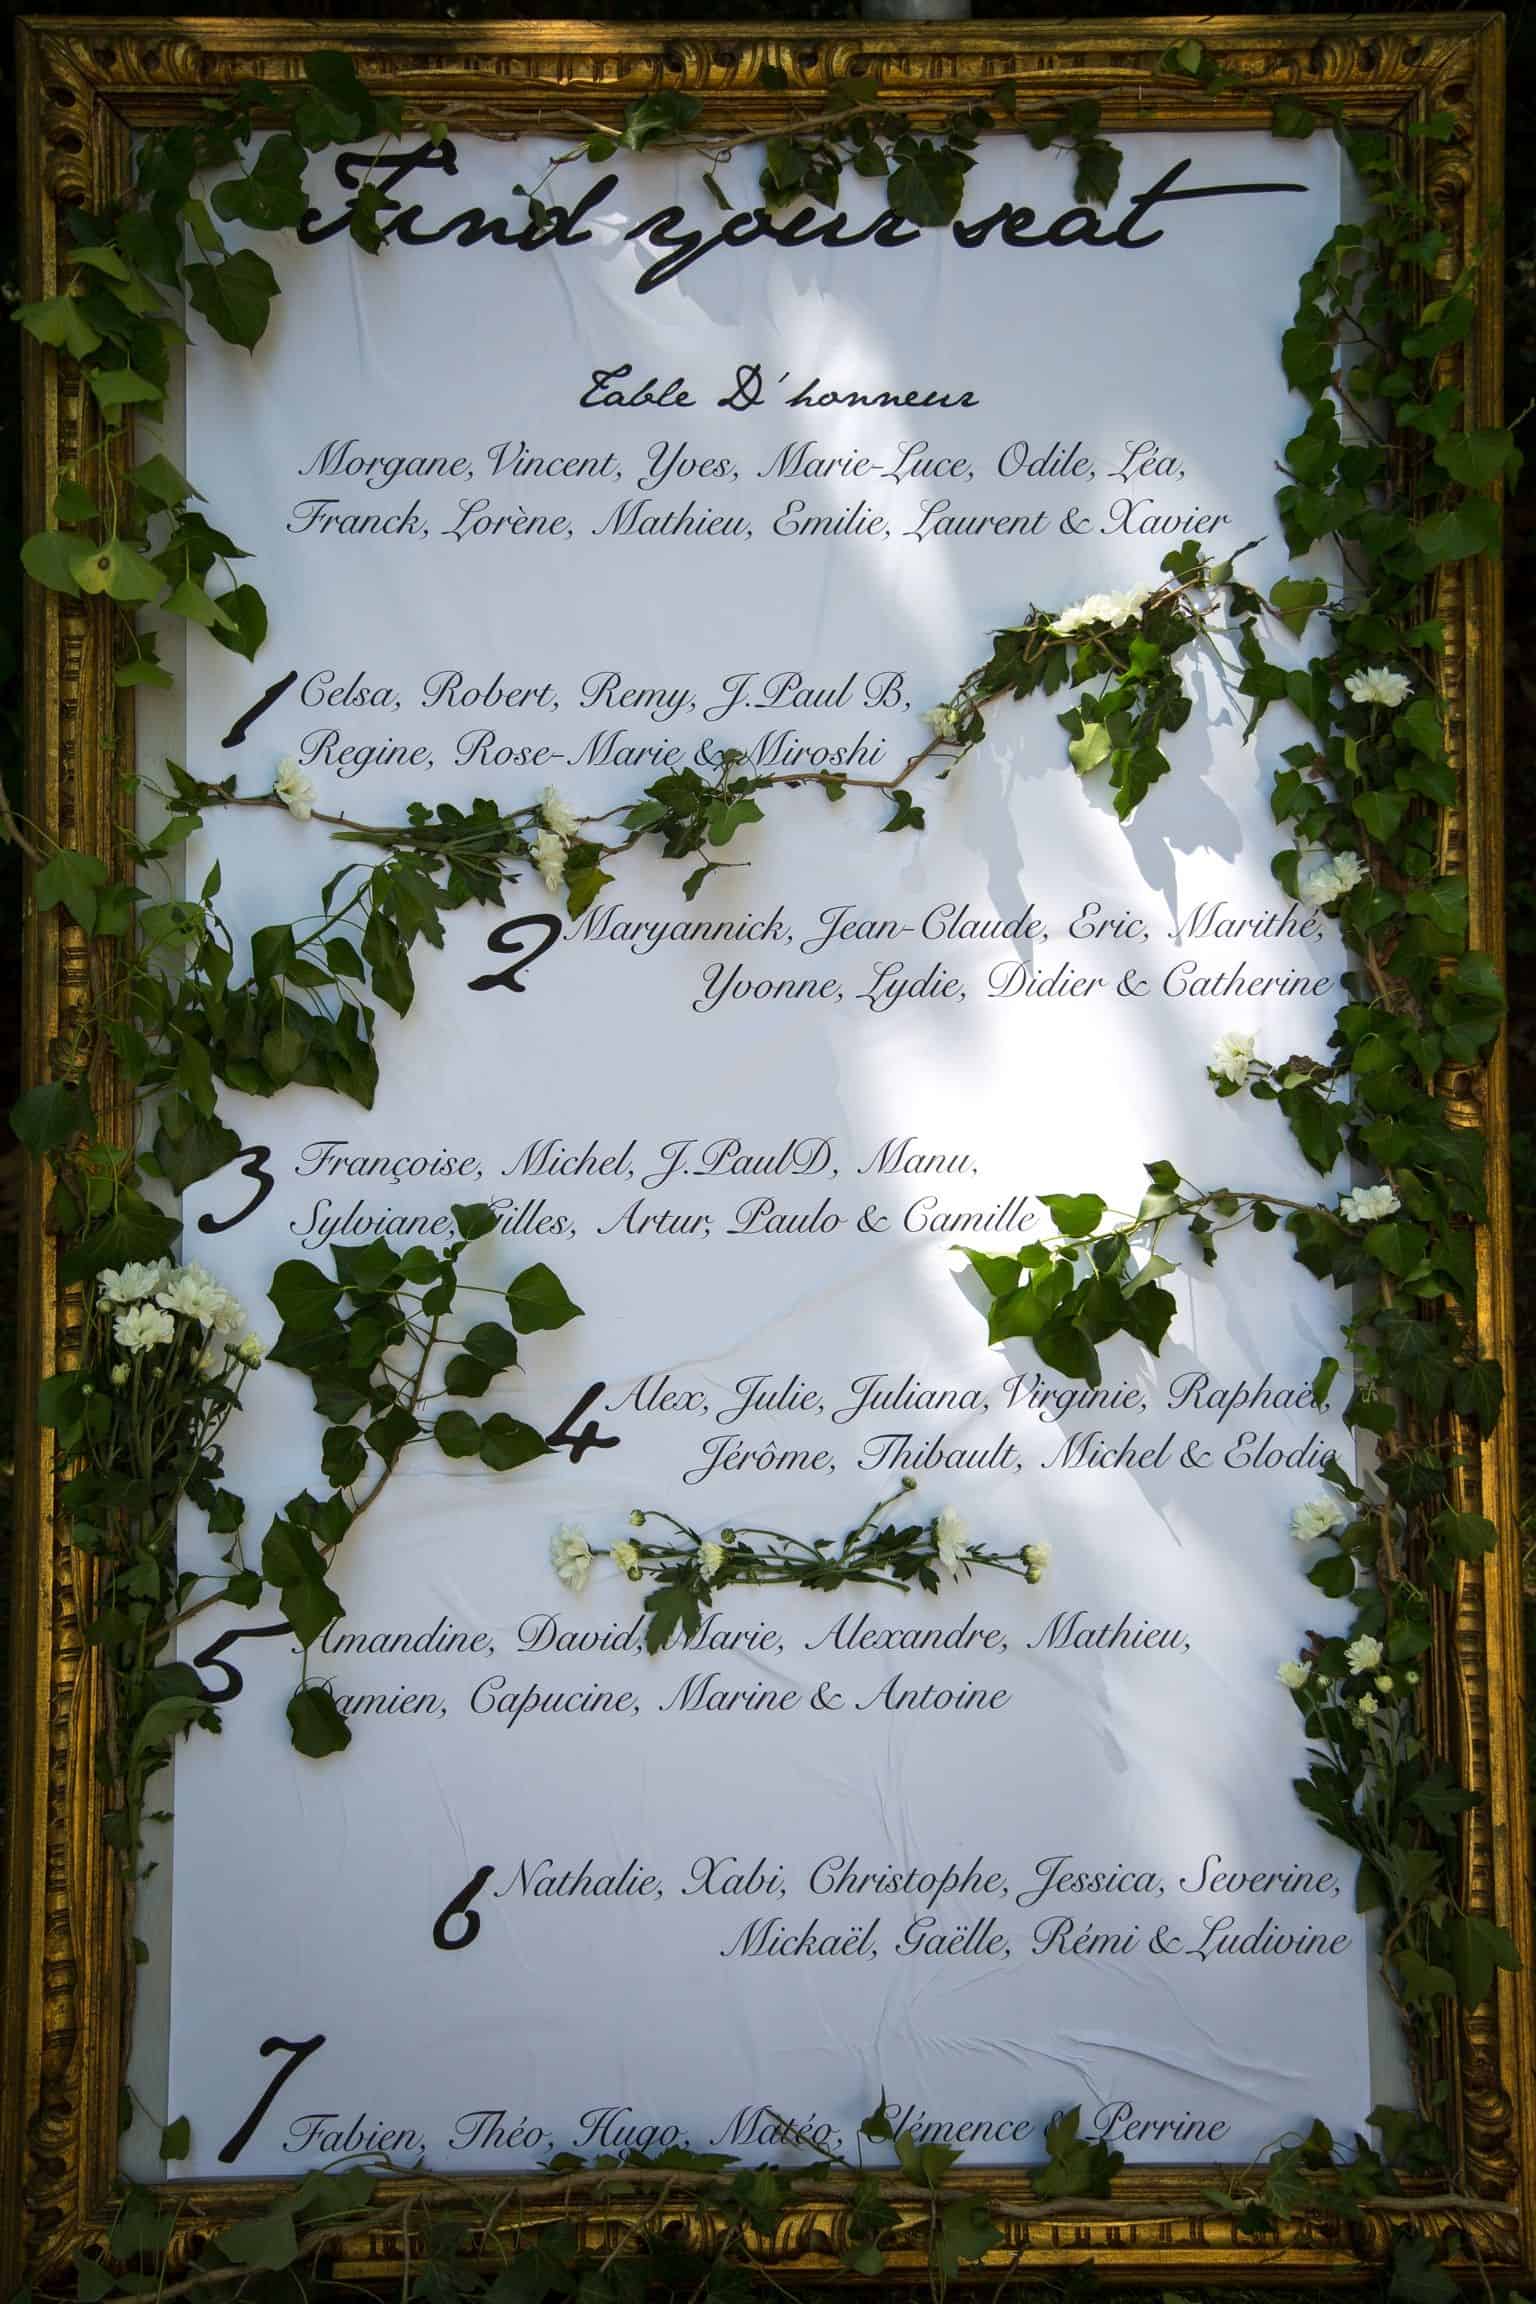 Find your seat
Table D'honneur
Morgane, Vincent, Yves, Marie-Luce, Odile, Léa,
Franck, Lorène, Mathieu, Emilie, Laurent & Xavier
1 Celsa, Robert, Remy, J.Paul B,
Regine, Rose-Marie & Miroshi
2 Maryannick, Jean-Claude, Eric, Marithé,
Yvonne, Lydie, Didier & Catherine
3 Françoise, Michel, J.PaulD, Manu,
Sylviane, Gilles, Artur, Paulo & Camille
4 Alex, Julie, Juliana, Virginie, Raphaël,
Jérôme, Thibault, Michel & Elodie
5 Amandine, David, Marie, Alexandre, Mathieu,
Damien, Capucine, Marine & Antoine
6 Nathalie, Xabi, Christophe, Jessica, Severine,
Mickaël, Gaëlle, Rémi & Ludivine
7 Fabien, Théo, Hugo, Matéo, Clémence & Perrine